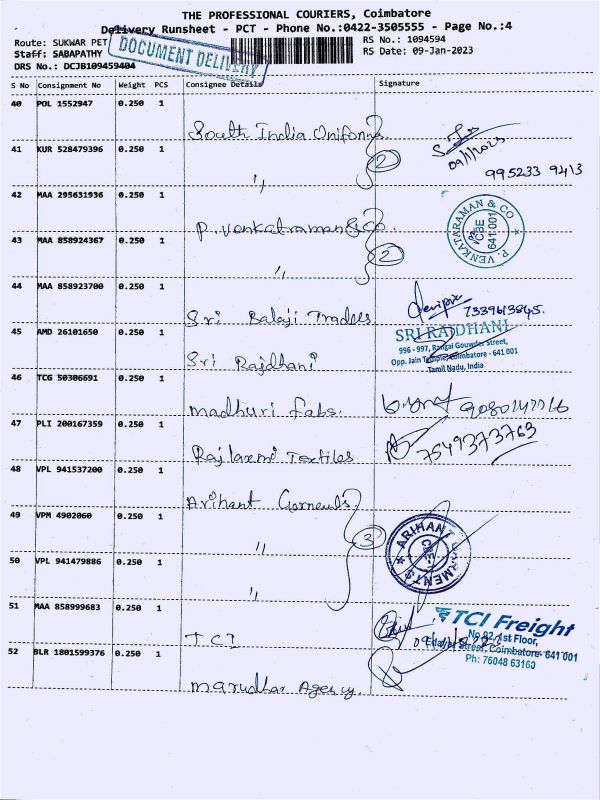 THE PROFESSIONAL COURIERS, Coimbatore
Delivery Runsheet - PCT - Phone No.:0422-3505555 - Page No.:4
Route: SUKWAR PET
RS No.: 1094594
Staff: SABAPATHY
DOCUMENT DELIVERY
RS Date: 09-Jan-2023
DRS No.: DCJB109459404
S No Consignment No Weight PCS Consignee Details Signature
40 POL 1552947 0.250 1
South India Uniforms
09/1/2023
41 KUR 528479396 0.250 1
2
995233 9413
"
42 MAA 295631936 0.250 1
P. Venkatraman & Co.
P. VENKATARAMAN & CO
CBE
641 001
43 MAA 858924367 0.250 1
2
"
44 MAA 858923700 0.250 1
Sri Balaji Traders
7339613845.
45 AMD 26101650 0.250 1
Sri Rajdhani
SRI RAJDHANI
996 - 997, Rangai Gowder Street,
Opp. Jain Temple, Coimbatore - 641 001
Tamil Nadu, India
46 TCG 50306691 0.250 1
Madhuri Fabs.
47 PLI 200167359 0.250 1
Rajlaxmi Textiles
7549373763
48 VPL 941537200 0.250 1
Arihant Garments
49 VPM 4902060 0.250 1
"
3
ARIHANT GARMENTS
CBE-1
50 VPL 941479886 0.250 1
"
51 MAA 858999683 0.250 1
TCI
TCI Freight
No.92, 1st Floor,
Street, Coimbatore- 641 001
Ph: 76048 63160
52 BLR 1801599376 0.250 1
Marudhar Agency.